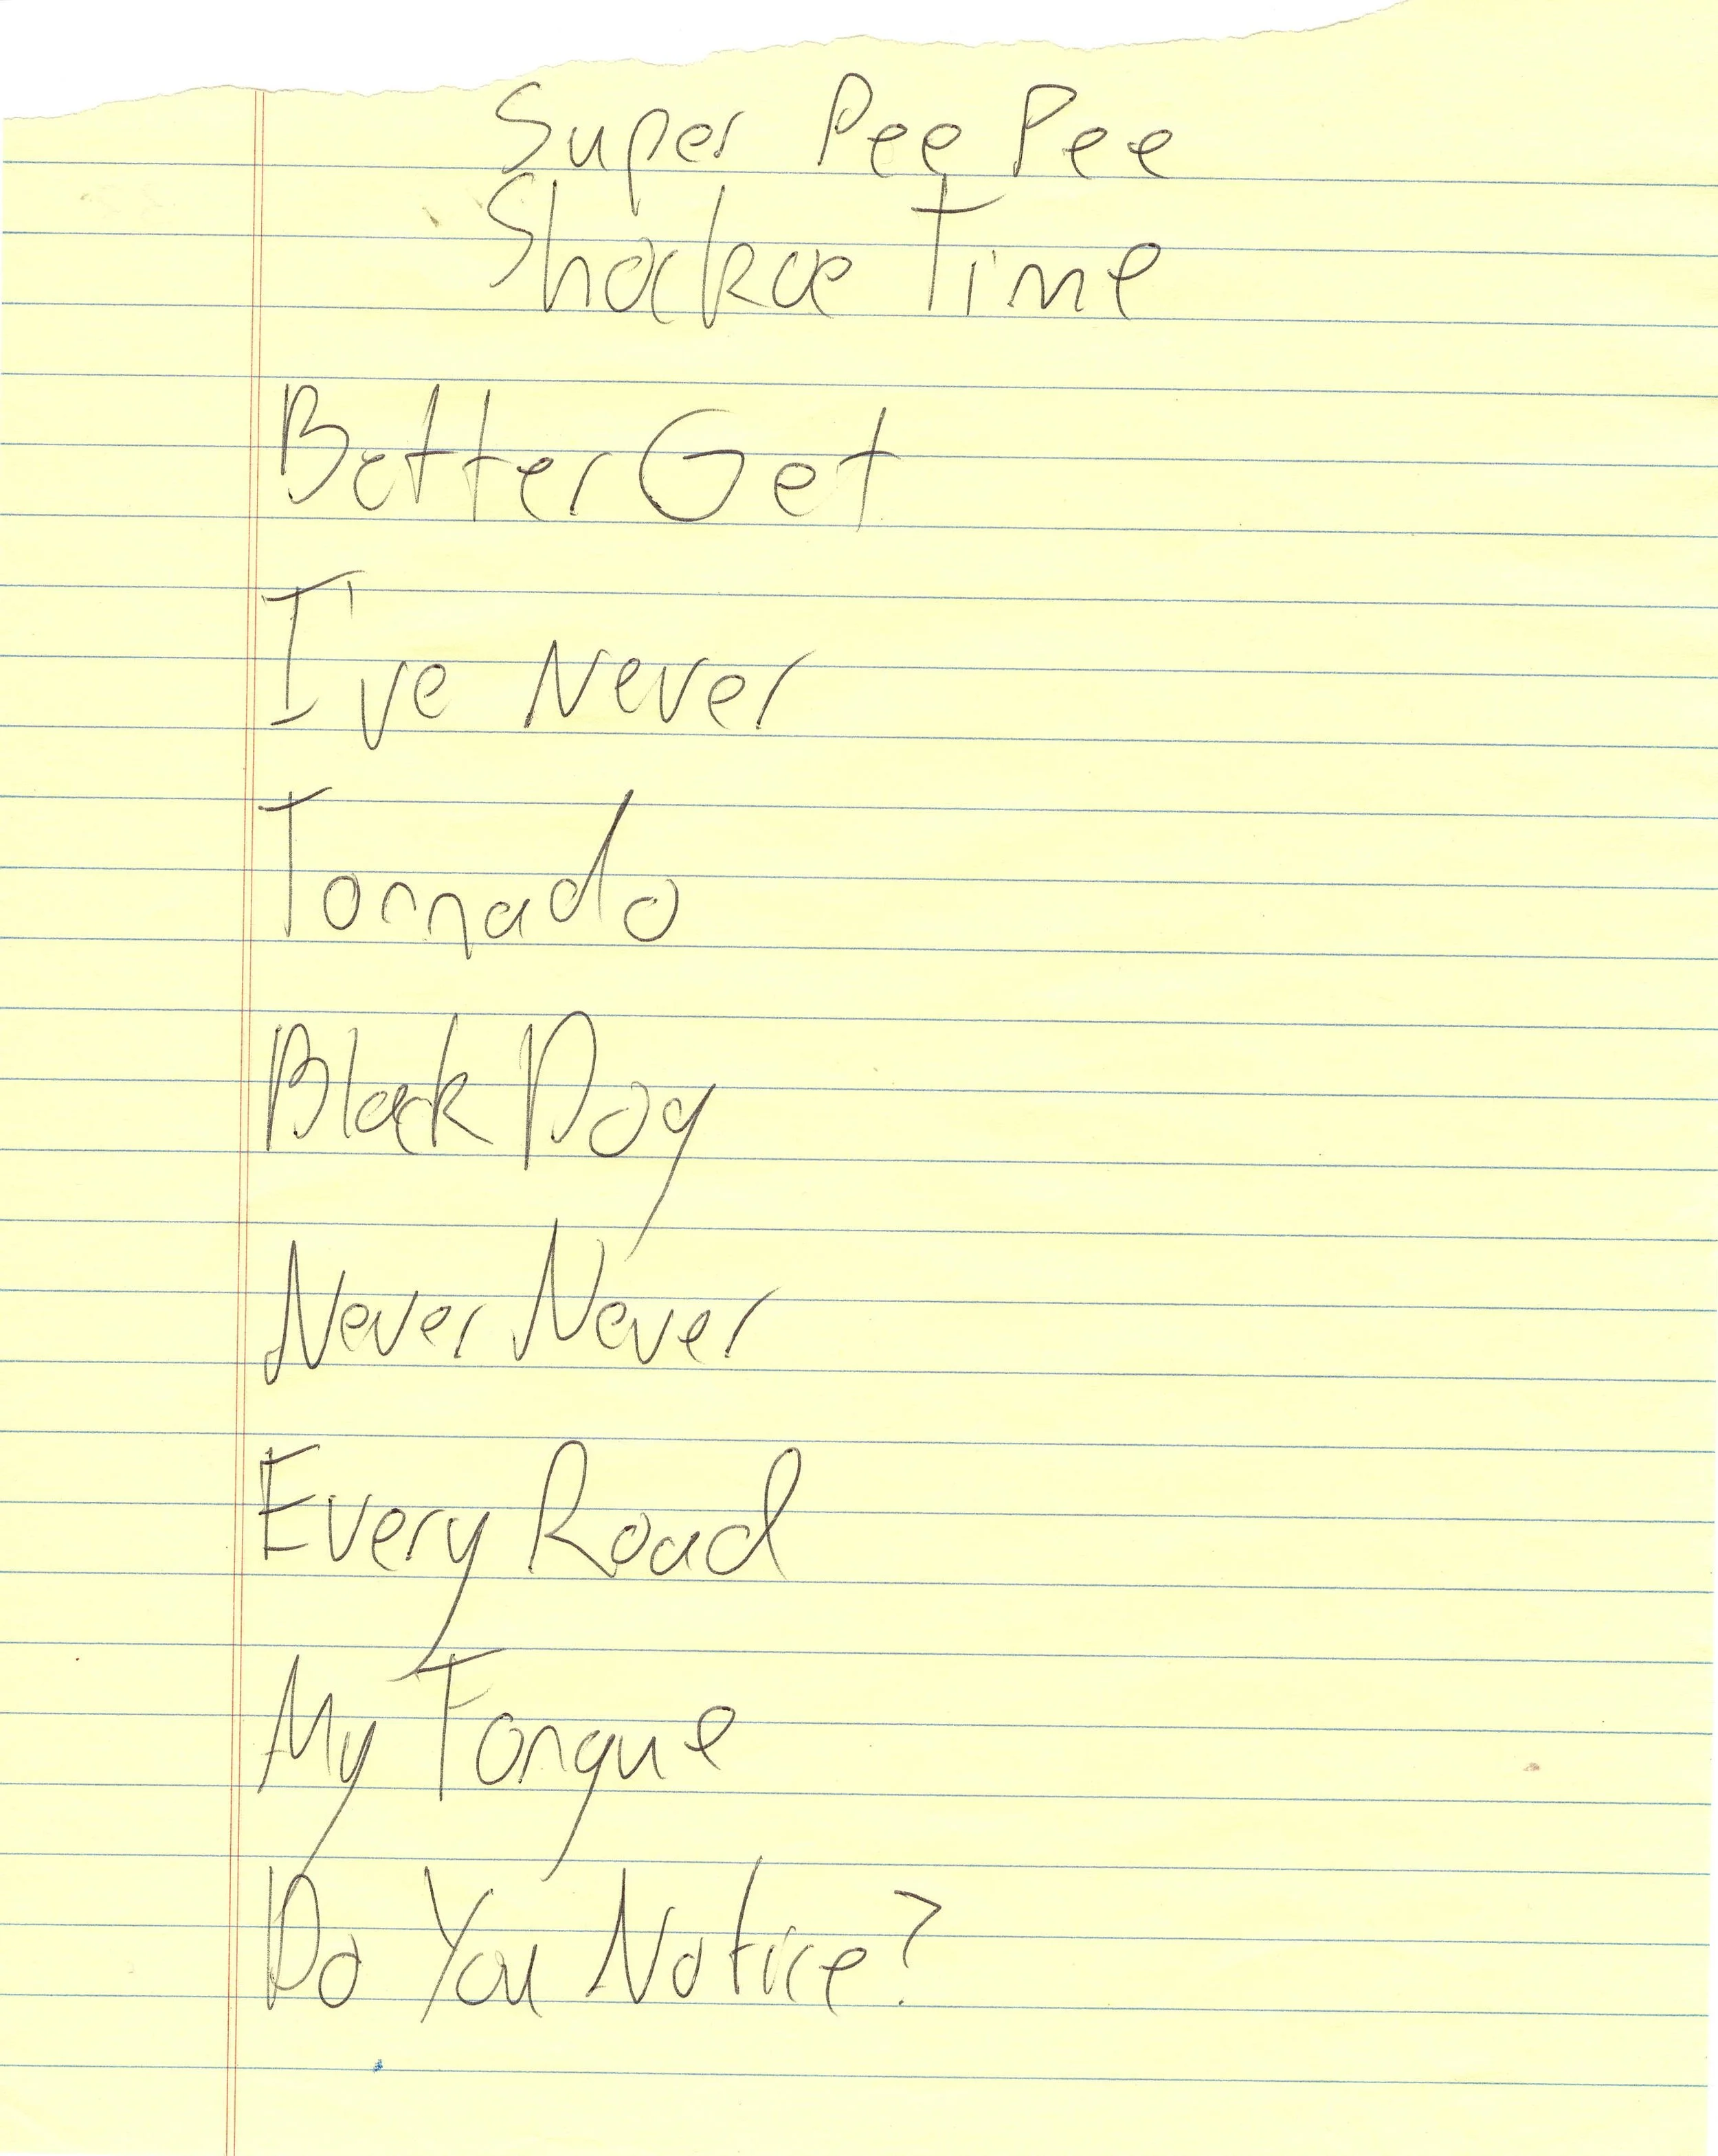 Super Pee Pee
Shockoe Time
Better Get
I've Never
Tornado
Black Dog
Never Never
Every Road
My Tongue
Do You Notice?